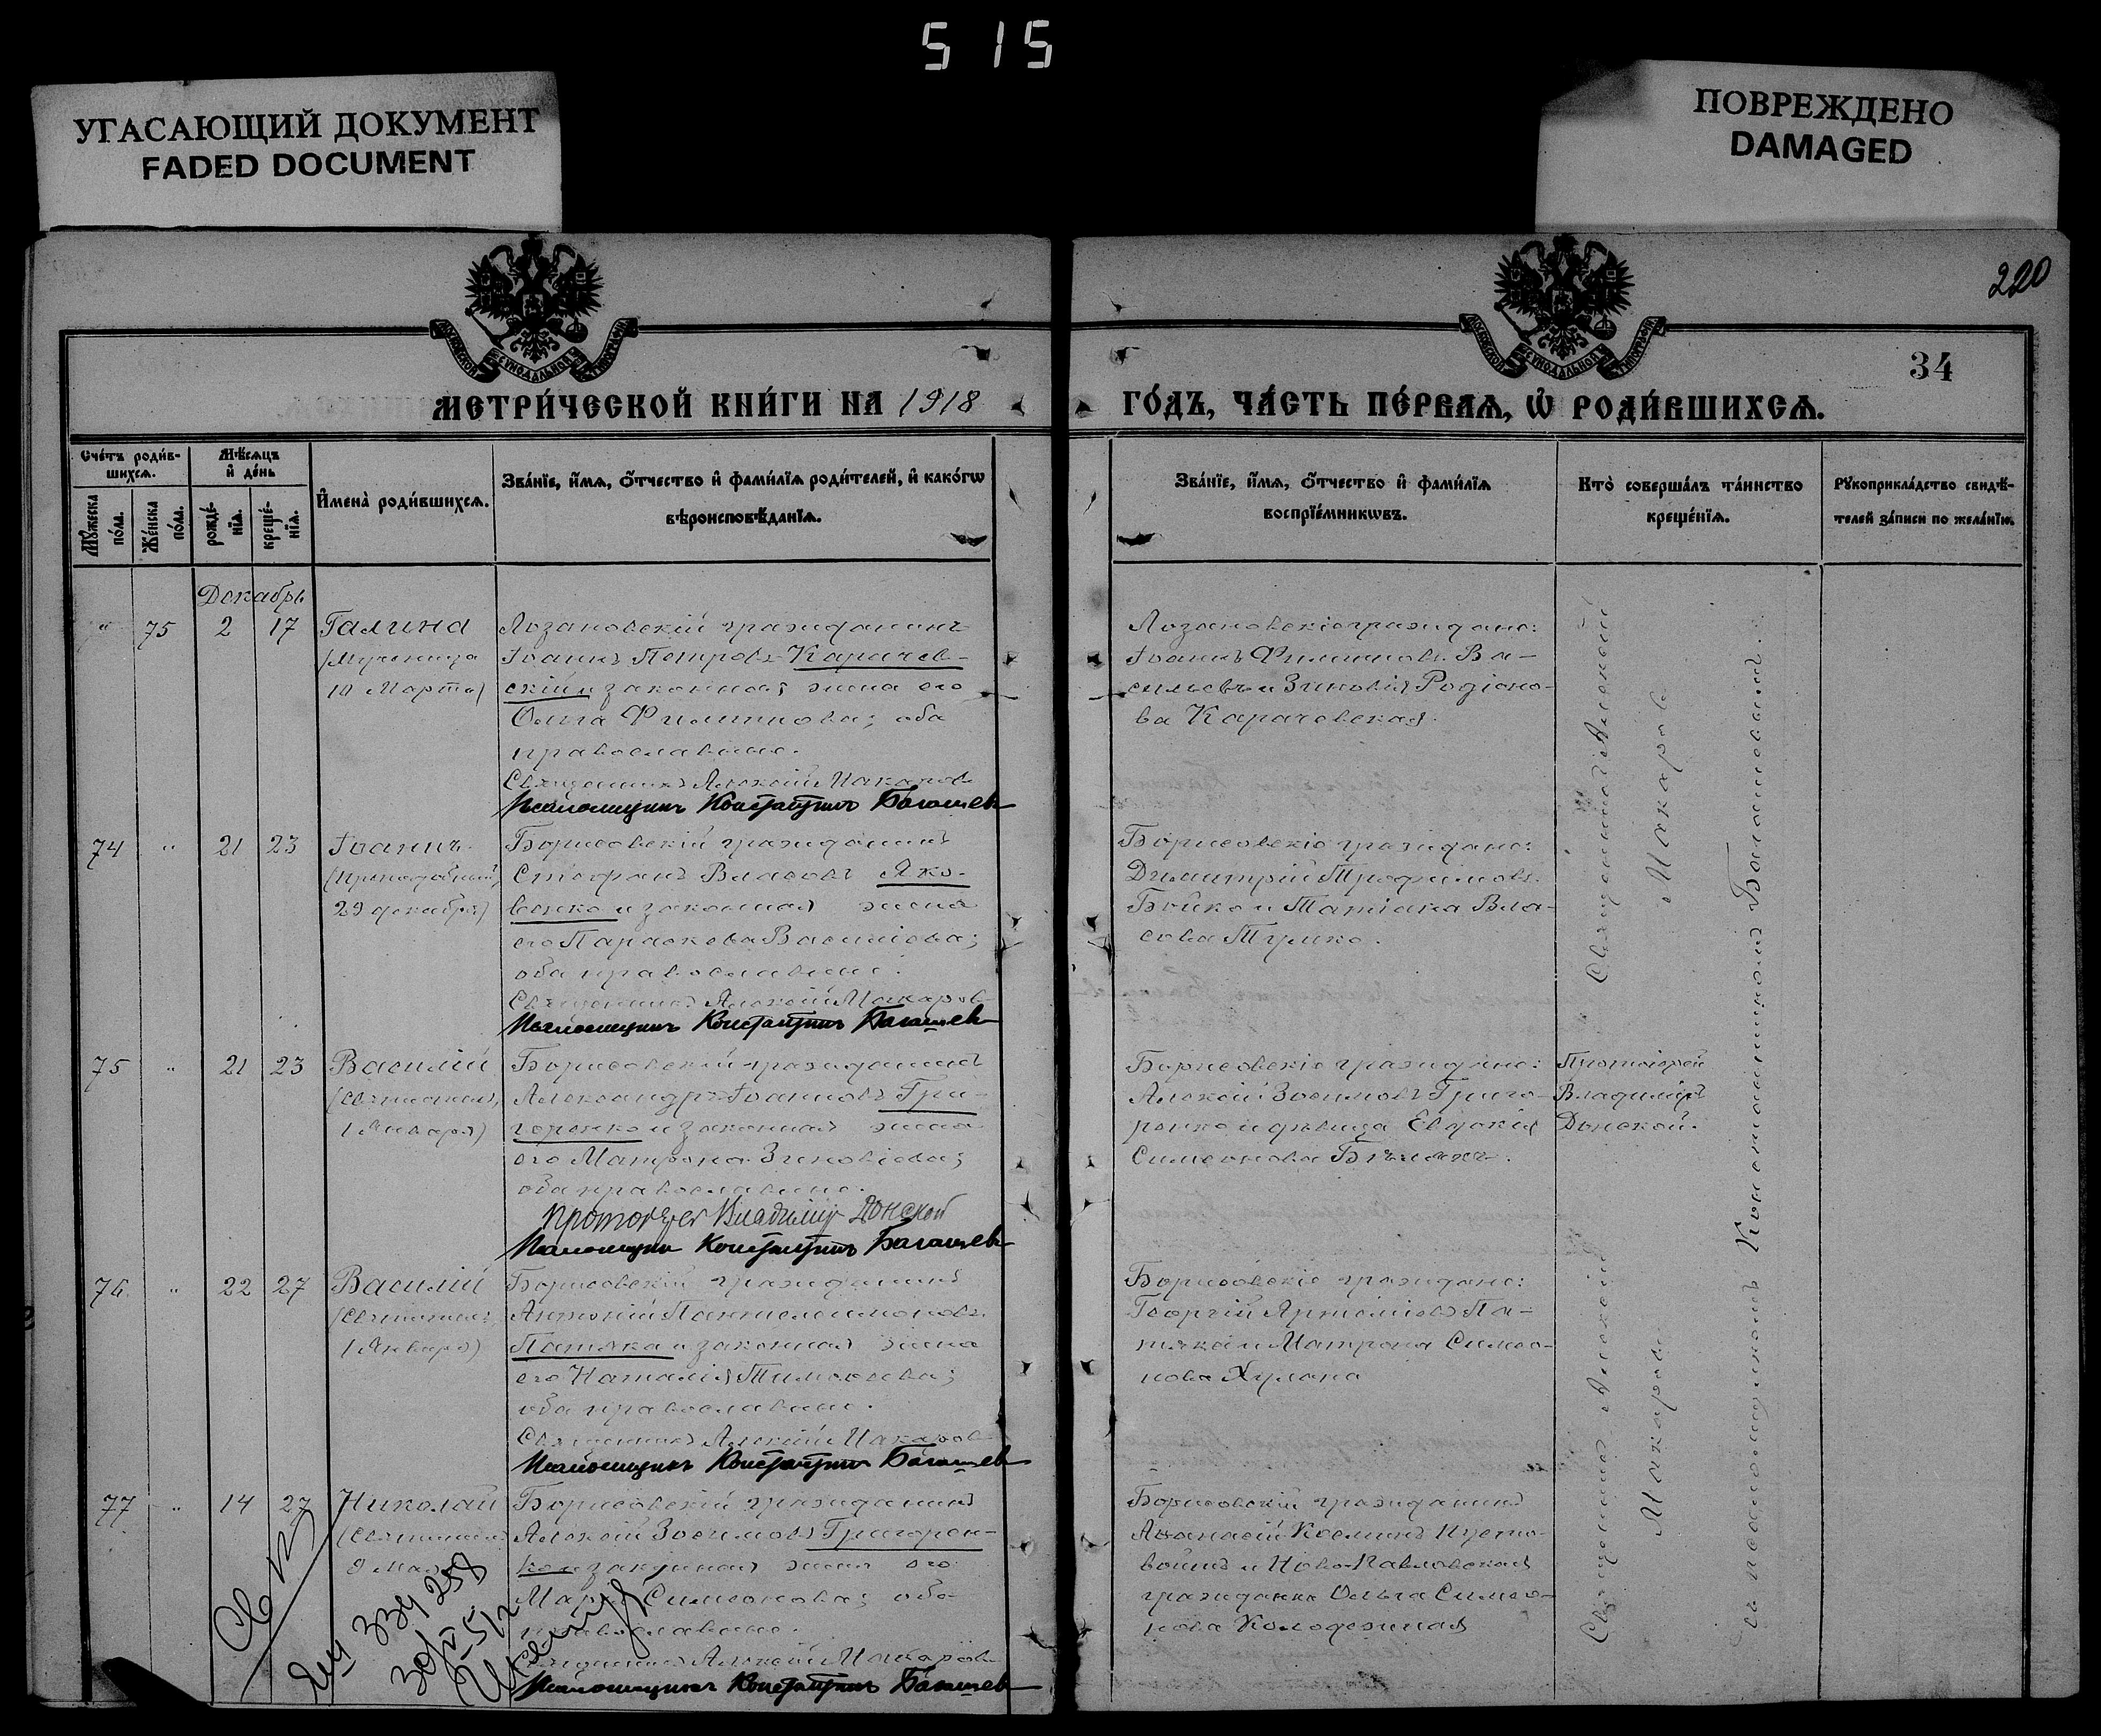 515
УГАСАЮЩИЙ ДОКУМЕНТ
FADED DOCUMENT
ПОВРЕЖДЕНО
DAMAGED
220
34
МЕТРИ́ЧЕСКОЙ КНИ́ГИ НА 1918
ГО́ДЪ, ЧА́СТЬ ПЕ́РВАѦ, Ѡ РОДИ́ВШИХСѦ.
Сче́тъ роди́в-
шихсѧ.
Мѣ́сѧцъ
и҆ де́нь
Мꙋ́жеска
по́ла.
Же́нска
по́ла.
рожде́-
нїѧ.
креще́-
нїѧ.
И҆мена̀ роди́вшихсѧ.
Зва́нїе, и҆́мѧ, ѻ҆́тчество и҆ фами́лїѧ роди́телей, и҆ како́гѡ
вѣроисповѣ́данїѧ.
Зва́нїе, и҆́мѧ, ѻ҆́тчество и҆ фами́лїѧ
воспрїе́мникѡвъ.
Кто̀ соверша́лъ та́инство
креще́нїѧ.
Рꙋкоприкла́дство свидѣ́-
телей за́писи по жела́нїю.
Декабрь
" 75 2 17 Галина
(Мученица
10 Марта)
Лозановскій гражданинъ
Іоаннъ Петровъ Карачев-
скій и законная жена его
Ольга Филиппова; оба
православные.
Священникъ Алексій Макаровъ
Псаломщикъ Константинъ Багашев
Лозановскіе граждане:
Іоаннъ Филипповъ Ва-
сильевъ и Зиновія Родіоно-
ва Карачевская.
74 " 21 23 Іоаннъ
(преподобный,
29 декабря)
Борисовскій гражданинъ
Стефанъ Власовъ Яко-
венко и законная жена
его Параскева Василіева;
оба православные.
Священникъ Алексій Макаровъ
Псаломщикъ Константинъ Багашев
Борисовскіе граждане:
Димитрій Трофимовъ
Бойко и Татіана Вла-
сова Тулико.
75 " 21 23 Василій
(святитель,
1 Января)
Борисовскій гражданинъ
Александръ Іоанновъ Гри-
горенко и законная жена
его Матрона Зиновіева;
оба православные.
Протоіерей Владимир Донской
Псаломщик Константинъ Багашев
Борисовскіе граждане:
Алексій Зосимовъ Григо-
ренко и дѣвица Евдокія
Симеонова
Протоіерей
Владиміръ
Донской.
76. " 22 27 Василій
(Святитель,
1 Января)
Борисовскій гражданинъ
Антоній Пантелеимоновъ
Патяка и законная жена
его Наталія Тимофеева;
оба православные.
Священникъ Алексій Макаровъ
Псаломщикъ Константинъ Багашев
Борисовскіе граждане:
Георгій Артеміевъ Па-
тяка и Матрона Симео-
нова Хулана
77 " 14 27 Николай
(Святитель
9 Мая)
Борисовскій гражданинъ
Алексій Зосимовъ Григорен-
ко и законная жена его
Марія Симеонова; оба
православные.
Священникъ Алексій Макаровъ
Псаломщикъ Константинъ Багашев
Борисовскій гражданинъ
Аѳанасій Космичъ Пусто-
войтъ и Ново-Павловская
гражданка Ольга Симео-
нова Колодезная
Священникъ Алексій
Макаровъ
Священникъ Алексій
Макаровъ
съ псаломщикомъ Константиномъ Багашевымъ.